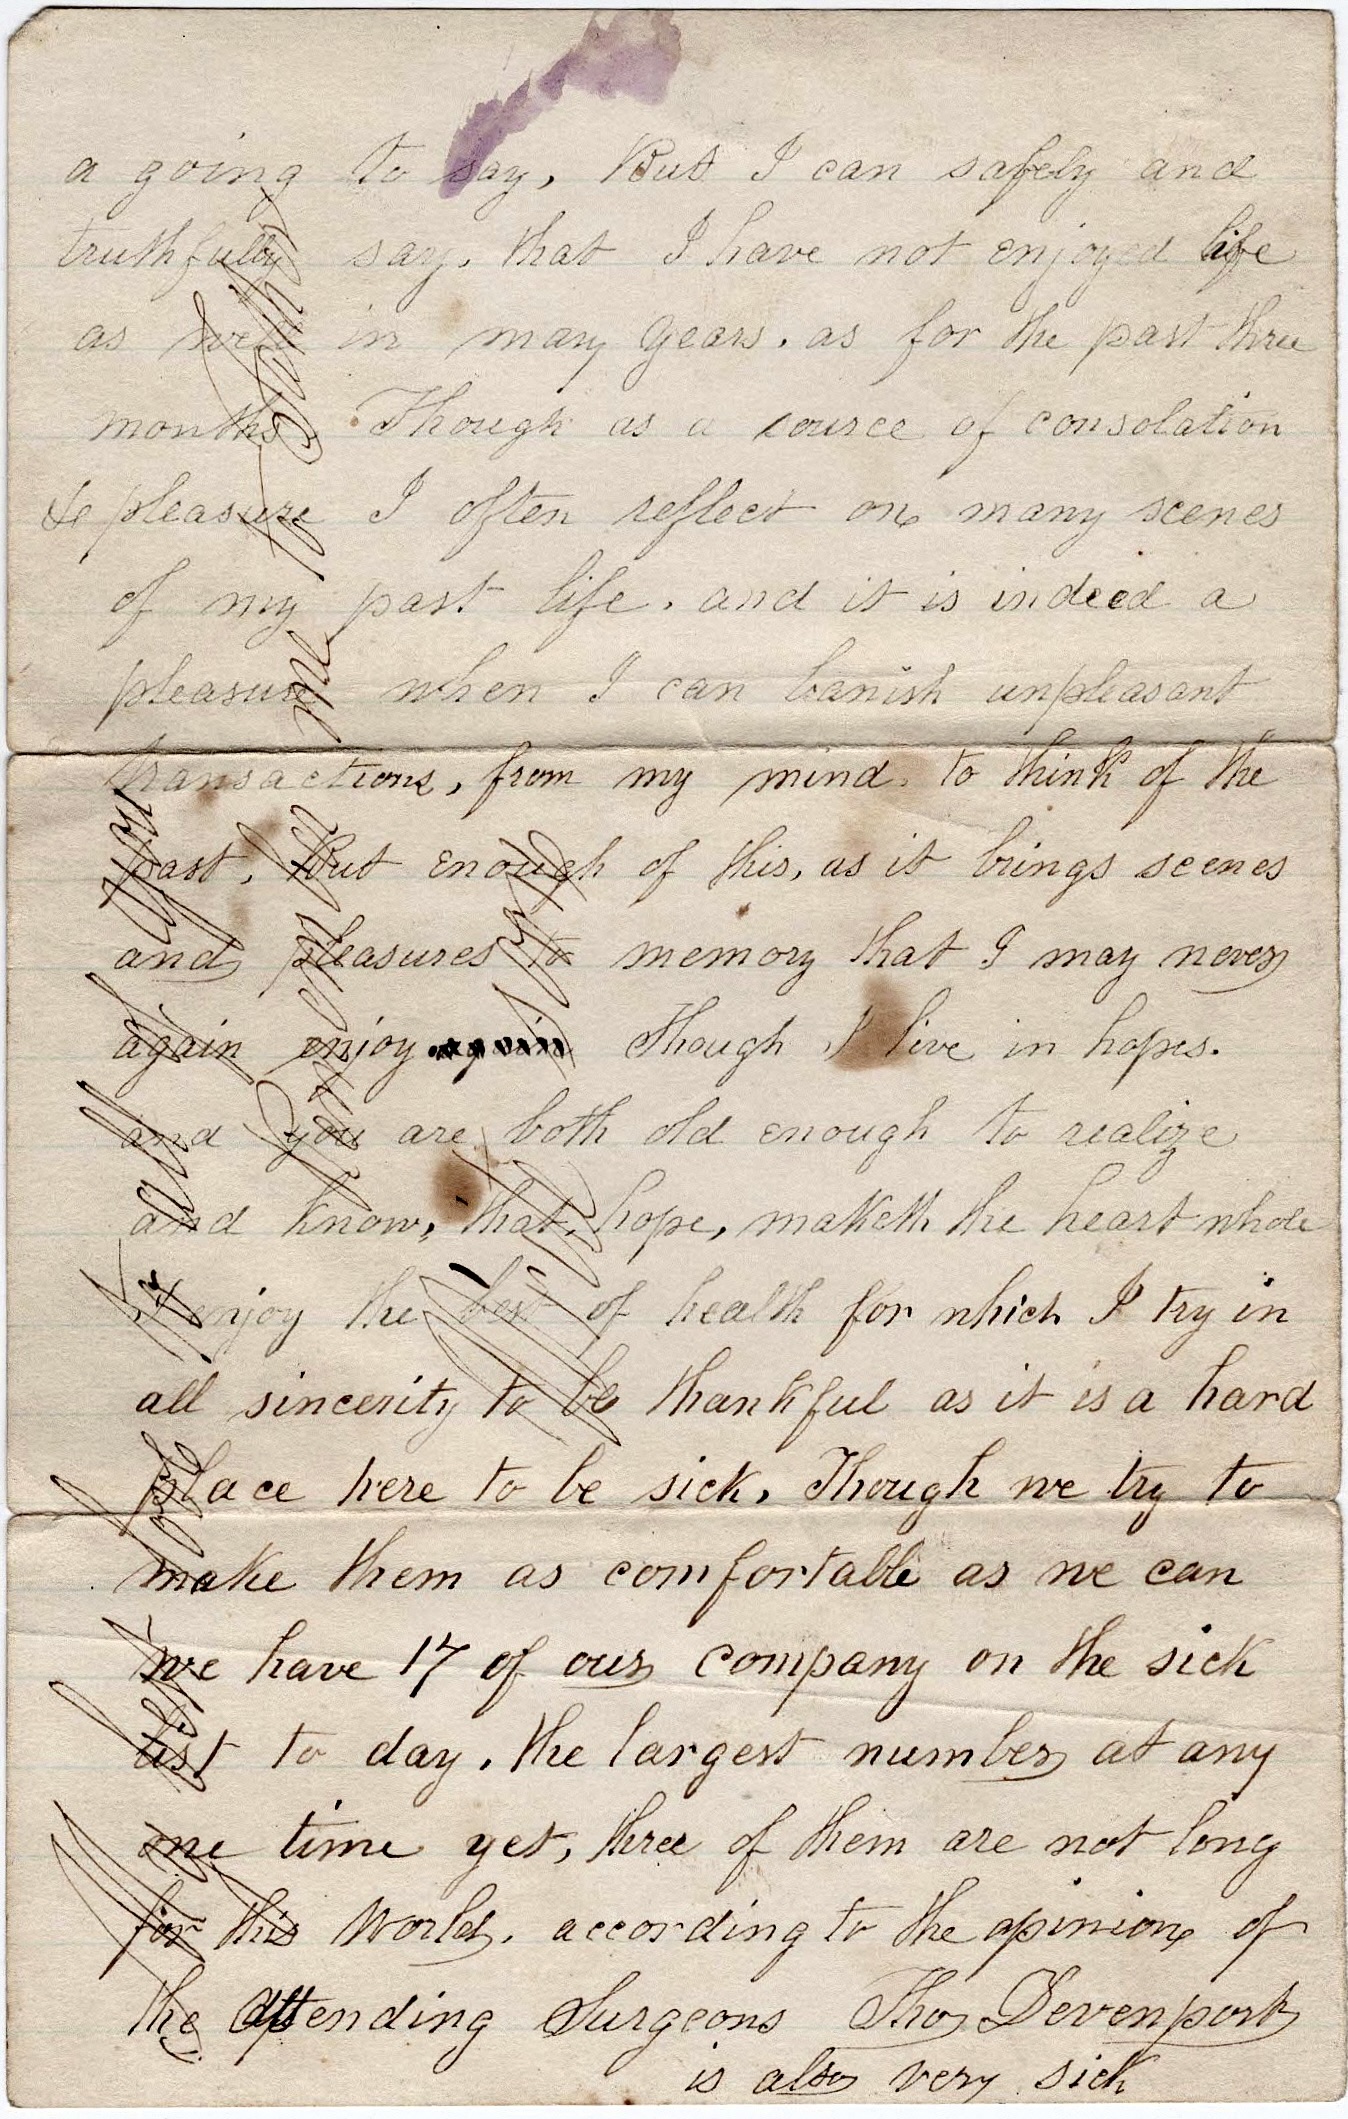 a going to say, But I can safely and
truthfully say, that I have not enjoyed life
as well in many years, as for the past three
months. Though as a source of consolation
& pleasure I often reflect on many scenes
of my past life. and it is indeed a
pleasure when I can banish unpleasant
transactions, from my mind, to think of the
past, But enough of this, as it brings scenes
and pleasures to memory that I may never
again enjoy again Though I live in hopes.
and you are both old enough to realize
and know, that, hope, maketh the heart whole
I enjoy the best of health for which I try in
all sincerity to be thankful as it is a hard
place here to be sick, Though we try to
make them as comfortable as we can
we have 17 of our company on the sick
list to day, the largest number at any
one time yet, three of them are not long
for this World, according to the opinion of
the attending Surgeons Thos Devenport
is also very sick
with love to all you
me to Father